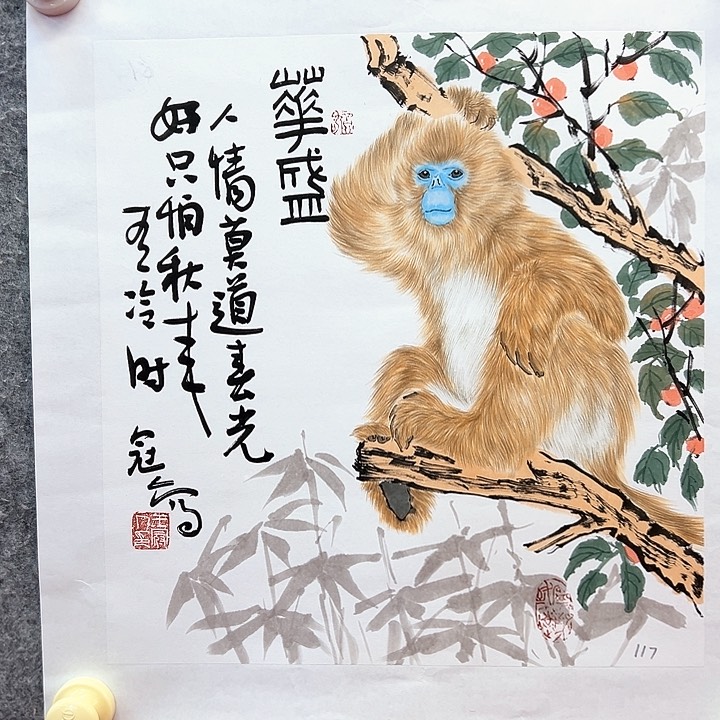 華盛
人情莫道春光
好只怕秋来
有冷时
冠 写
117